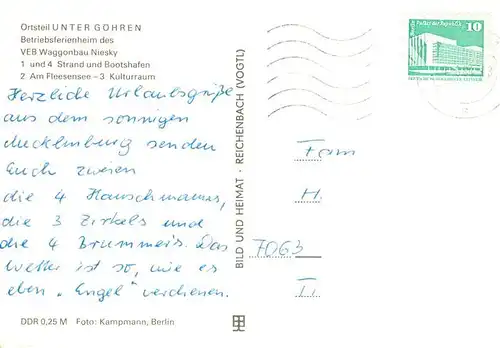 Ortsteil UNTER GÖHREN
Betriebsferienheim des
VEB Waggonbau Niesky
1 und 4 Strand und Bootshafen
2 Am Fleesensee – 3 Kulturraum
Herzliche Urlaubsgrüße
aus dem sonnigen
Mecklenburg senden
Euch zweien
die 4 Hauschmanns,
die 3 Zirkels und
die 4 Brummers. Das
Wetter ist so, wie es
eben "Engel" verdienen.
DDR 0,25 M Foto: Kampmann, Berlin
BILD UND HEIMAT · REICHENBACH (VOGTL)
Berlin, Palast der Republik
10
Fam
H.
7063
T.